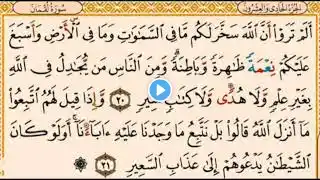 الجزء الحادي والعشرون سورة لقمان
أَلَمْ تَرَوْا۟ أَنَّ ٱللَّهَ سَخَّرَ لَكُم مَّا فِى ٱلسَّمَـٰوَٰتِ وَمَا فِى ٱلْأَرْضِ وَأَسْبَغَ
عَلَيْكُمْ نِعَمَهُۥ ظَـٰهِرَةً وَبَاطِنَةً ۗ وَمِنَ ٱلنَّاسِ مَن يُجَـٰدِلُ فِى ٱللَّهِ
بِغَيْرِ عِلْمٍ وَلَا هُدًى وَلَا كِتَـٰبٍ مُّنِيرٍ ٢٠ وَإِذَا قِيلَ لَهُمُ ٱتَّبِعُوا۟
مَآ أَنزَلَ ٱللَّهُ قَالُوا۟ بَلْ نَتَّبِعُ مَا وَجَدْنَا عَلَيْهِ ءَابَآءَنَآ ۚ أَوَلَوْ كَانَ
ٱلشَّيْطَـٰنُ يَدْعُوهُمْ إِلَىٰ عَذَابِ ٱلسَّعِيرِ ٢١